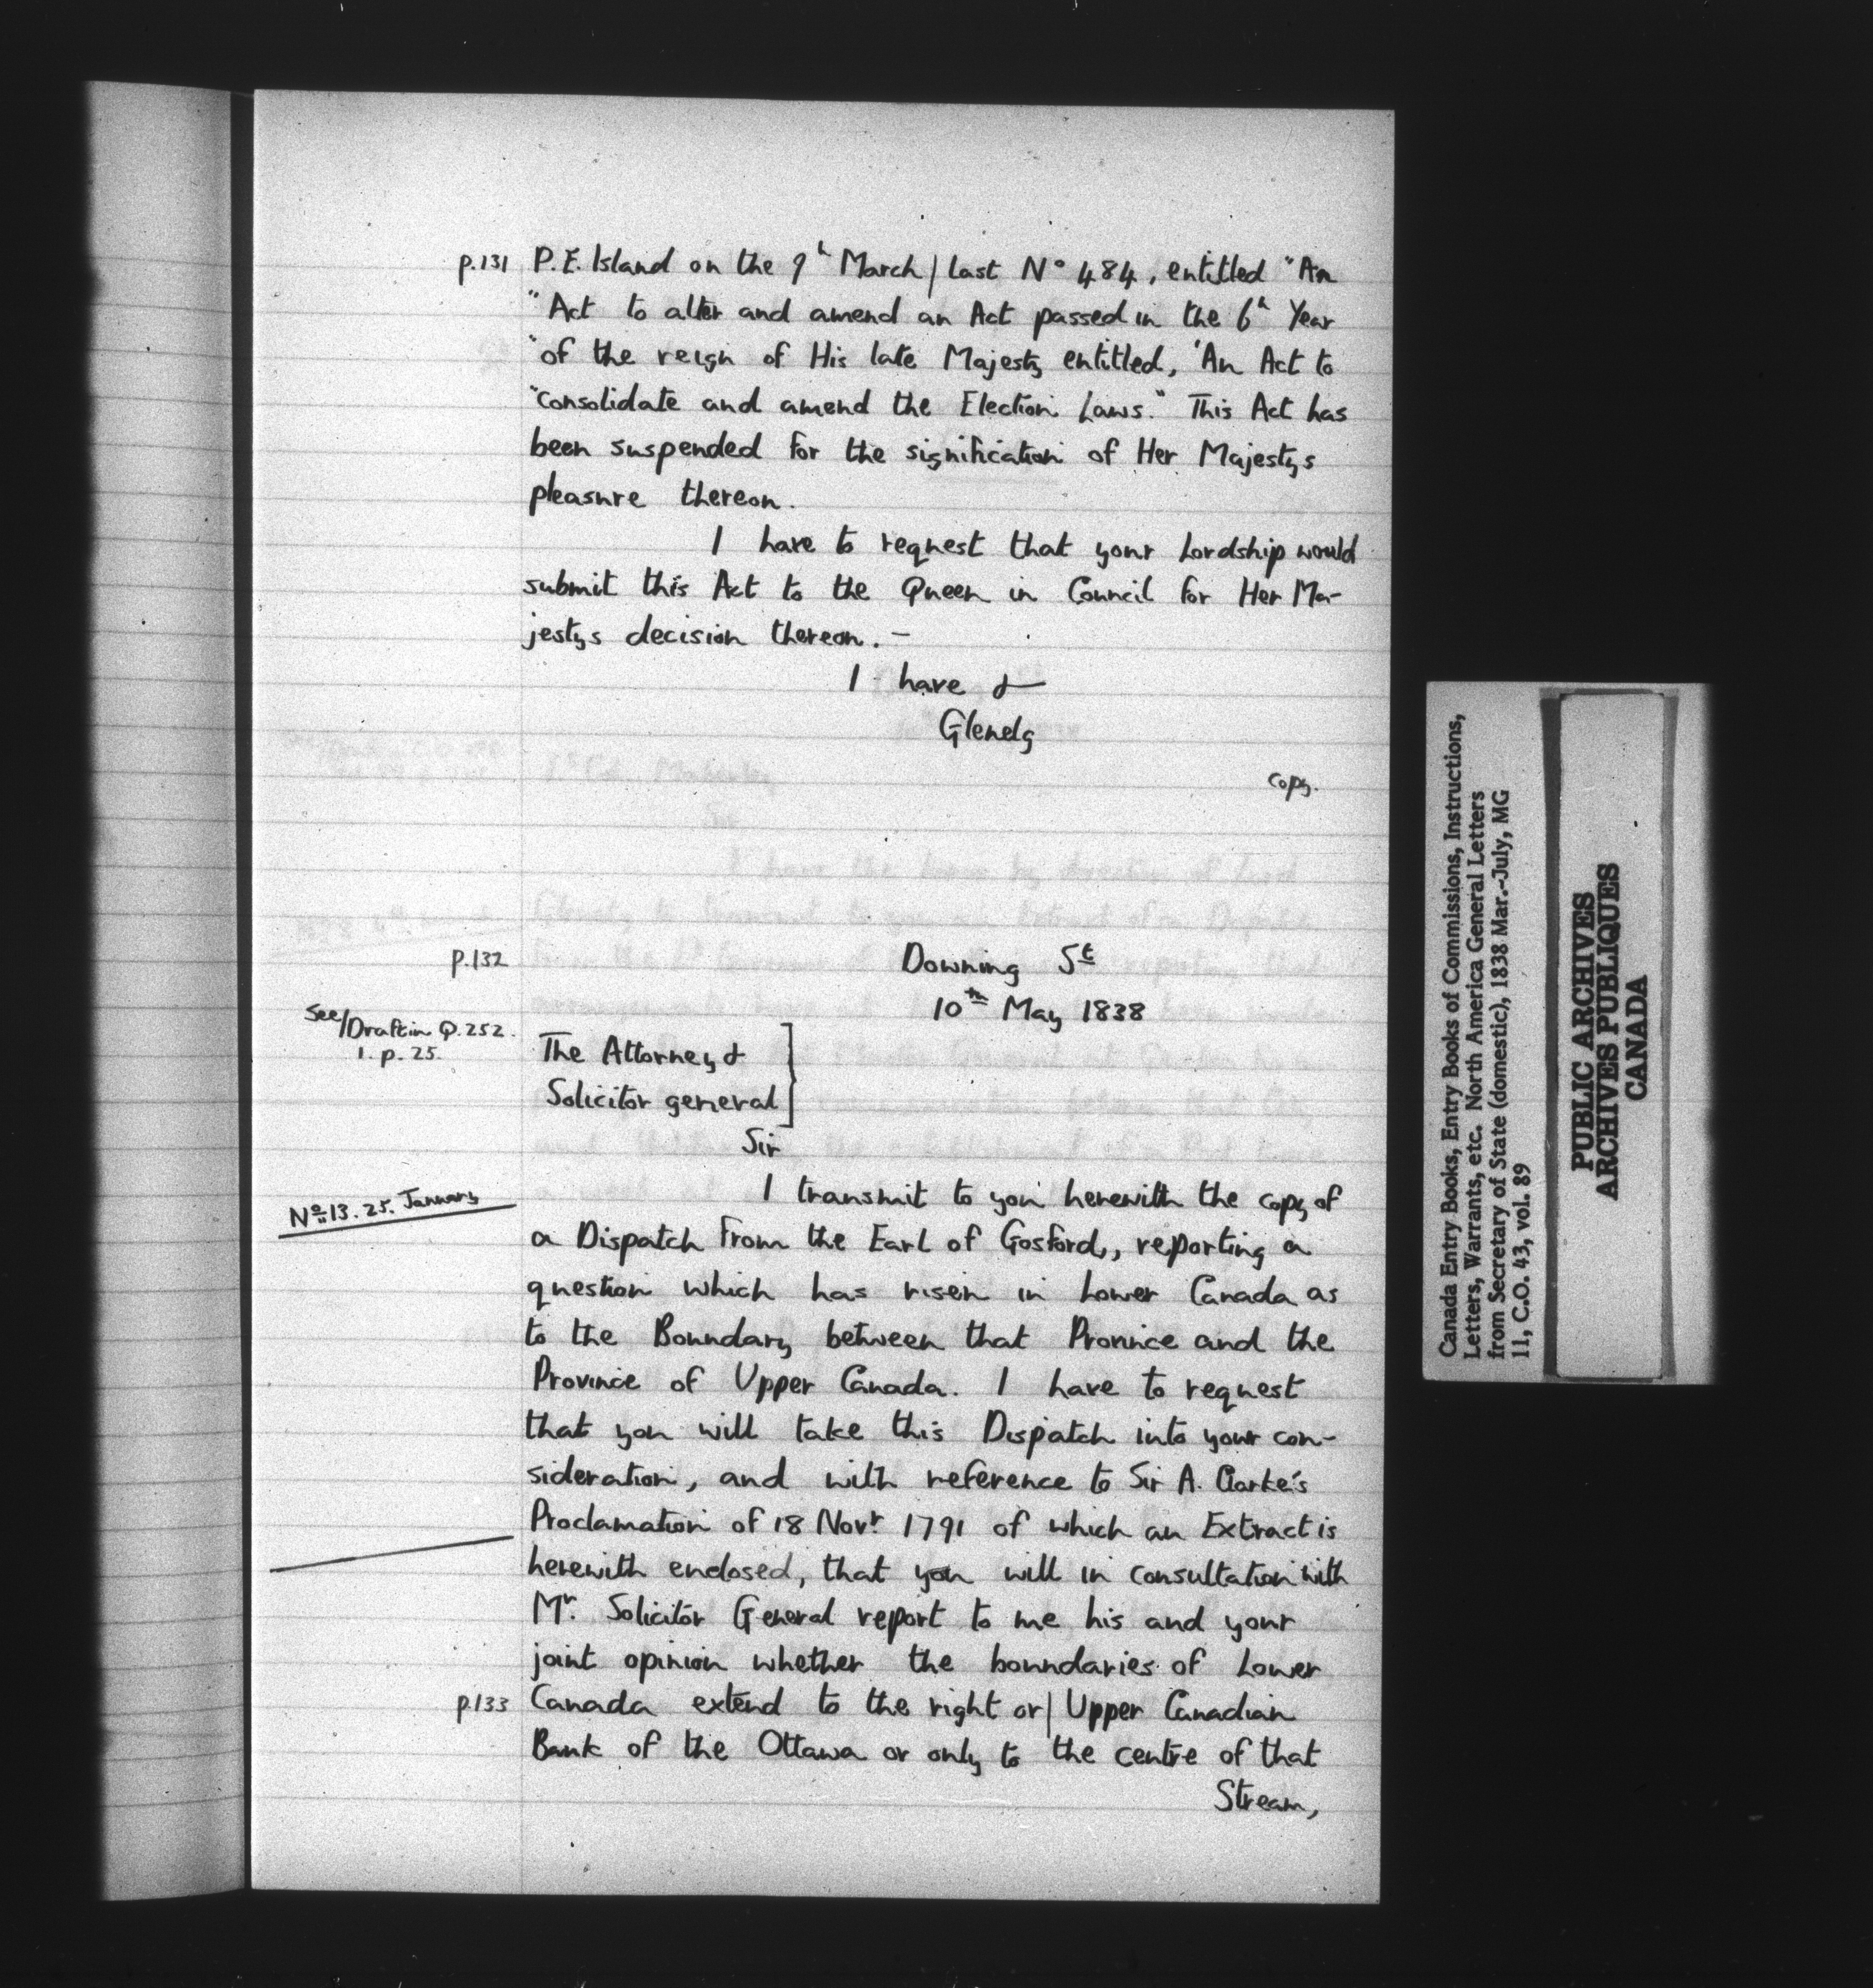 p.131 P.E. Island on the 9h March | last No 484, entitled "An
"Act to alter and amend an Act passed in the 6h Year
"of the reign of His late Majesty entitled, 'An Act to
"consolidate and amend the Election Laws." This Act has
been suspended for the signification of Her Majestys
pleasure thereon.
I have to request that your Lordship would
submit this Act to the Queen in Council for Her Ma-
jestys decision thereon. –
I have &
Glenelg
copy.
p.132 Downing St
10th May 1838
See/Draft in Q.252.
1. p. 25.
The Attorney &
Solicitor general
Sir
No 13. 25. January
I transmit to you herewith the copy of
a Dispatch from the Earl of Gosford, reporting a
question which has risen in Lower Canada as
to the Boundary between that Province and the
Province of Upper Canada. I have to request
that you will take this Dispatch into your con-
sideration, and with reference to Sir A. Clarke's
Proclamation of 18 Novr. 1791 of which an Extract is
herewith enclosed, that you will in consultation with
Mr. Solicitor General report to me his and your
joint opinion whether the boundaries of Lower
p.133 Canada extend to the right or | Upper Canadian
Bank of the Ottawa or only to the centre of that
Stream,
Canada Entry Books, Entry Books of Commissions, Instructions,
Letters, Warrants, etc. North America General Letters
from Secretary of State (domestic), 1838 Mar.-July, MG
11, C.O. 43, vol. 89
PUBLIC ARCHIVES
ARCHIVES PUBLIQUES
CANADA